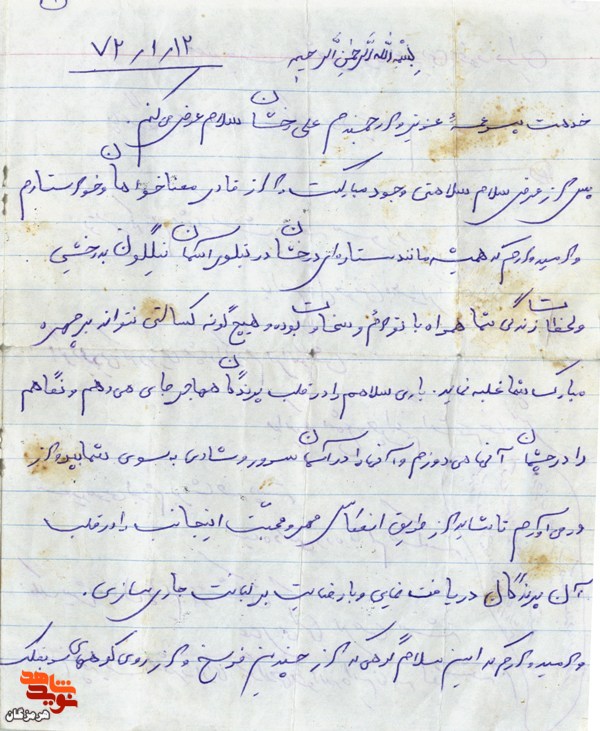 بسم الله الرحمن الرحیم
۷۲/۱/۱۲
خدمت پسرعمهٔ عزیز و ارجمندم علی رخشان سلام عرض می‌کنم.
پس از عرض سلام سلامتی وجود مبارکت را از قادر متعال خواهان و خواستارم
و امیدوارم که همیشه مانند ستاره‌ای درخشان در تابلوی آسمان نیلگون بدرخشی
و لحظات زندگی شما همراه با تداوم و سخاوت بوده و هیچ گونه کسالتی نتواند بر چهره
مبارک شما غلبه نماید. باری سلامم را در قلب پرندگان مهاجر جای می‌دهم و نگاهم
را در چشمان آنها می‌دوزم و آنها را در آسمان سرور و شادی به سوی شما به پرواز
در می‌آورم تا شاید از طریق انعکاس مهر و محبّت اینجانب را در قلب
آن پرندگان دریافت نمایی و با رضایت بر لبانت جاری سازی.
و امیدوارم که این سلام گرمی که از چندین فرسخ و از روی کوههای سر به فلک
شاهد
نوید
هرمزگان